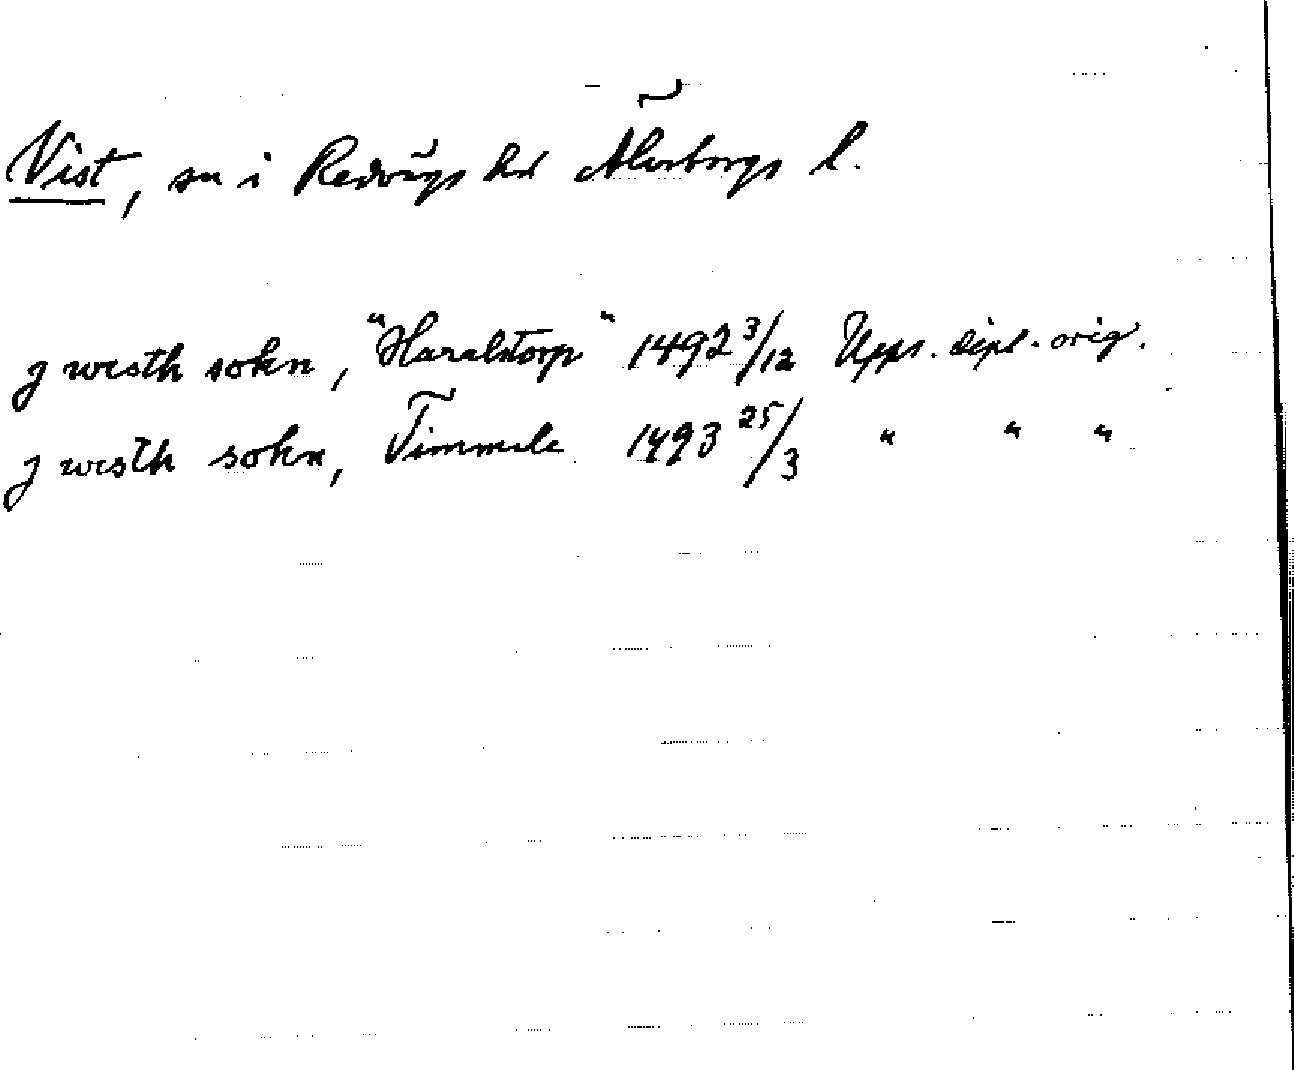 Vist, sn i Redvägs hd Älvsborgs l.
j westh sokn, "Haralstorp" 1492 3/12 Upps. dipl. orig.
j westh sokn, Timmele 1493 25/3 " " "